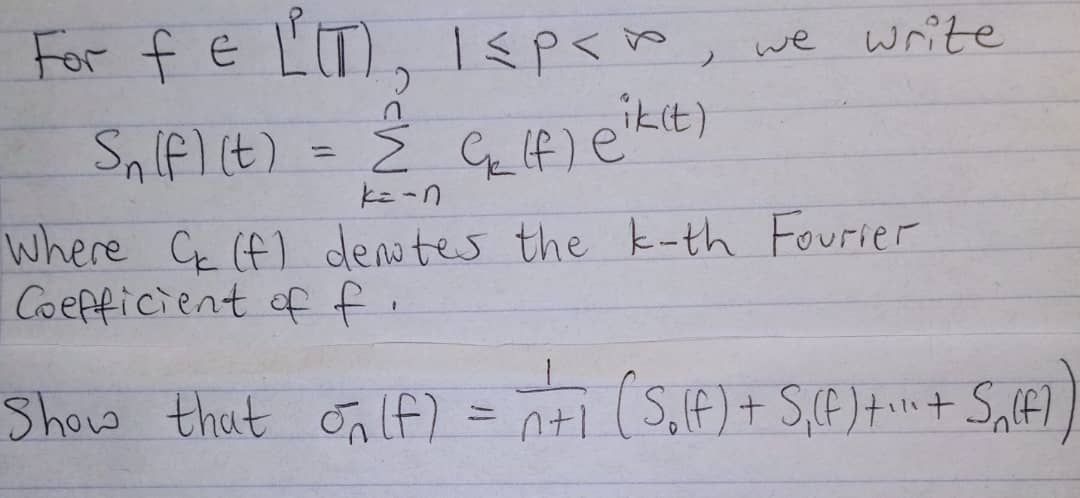 For f ∈ L^p(𝕋), 1 ≤ p < ∞, we write
S_n(f)(t) = Σ_{k=-n}^{n} c_k(f) e^{ik(t)}
Where c_k(f) denotes the k-th Fourier
Coefficient of f.
Show that σ_n(f) = 1/(n+1) (S_0(f) + S_1(f) + ... + S_n(f))